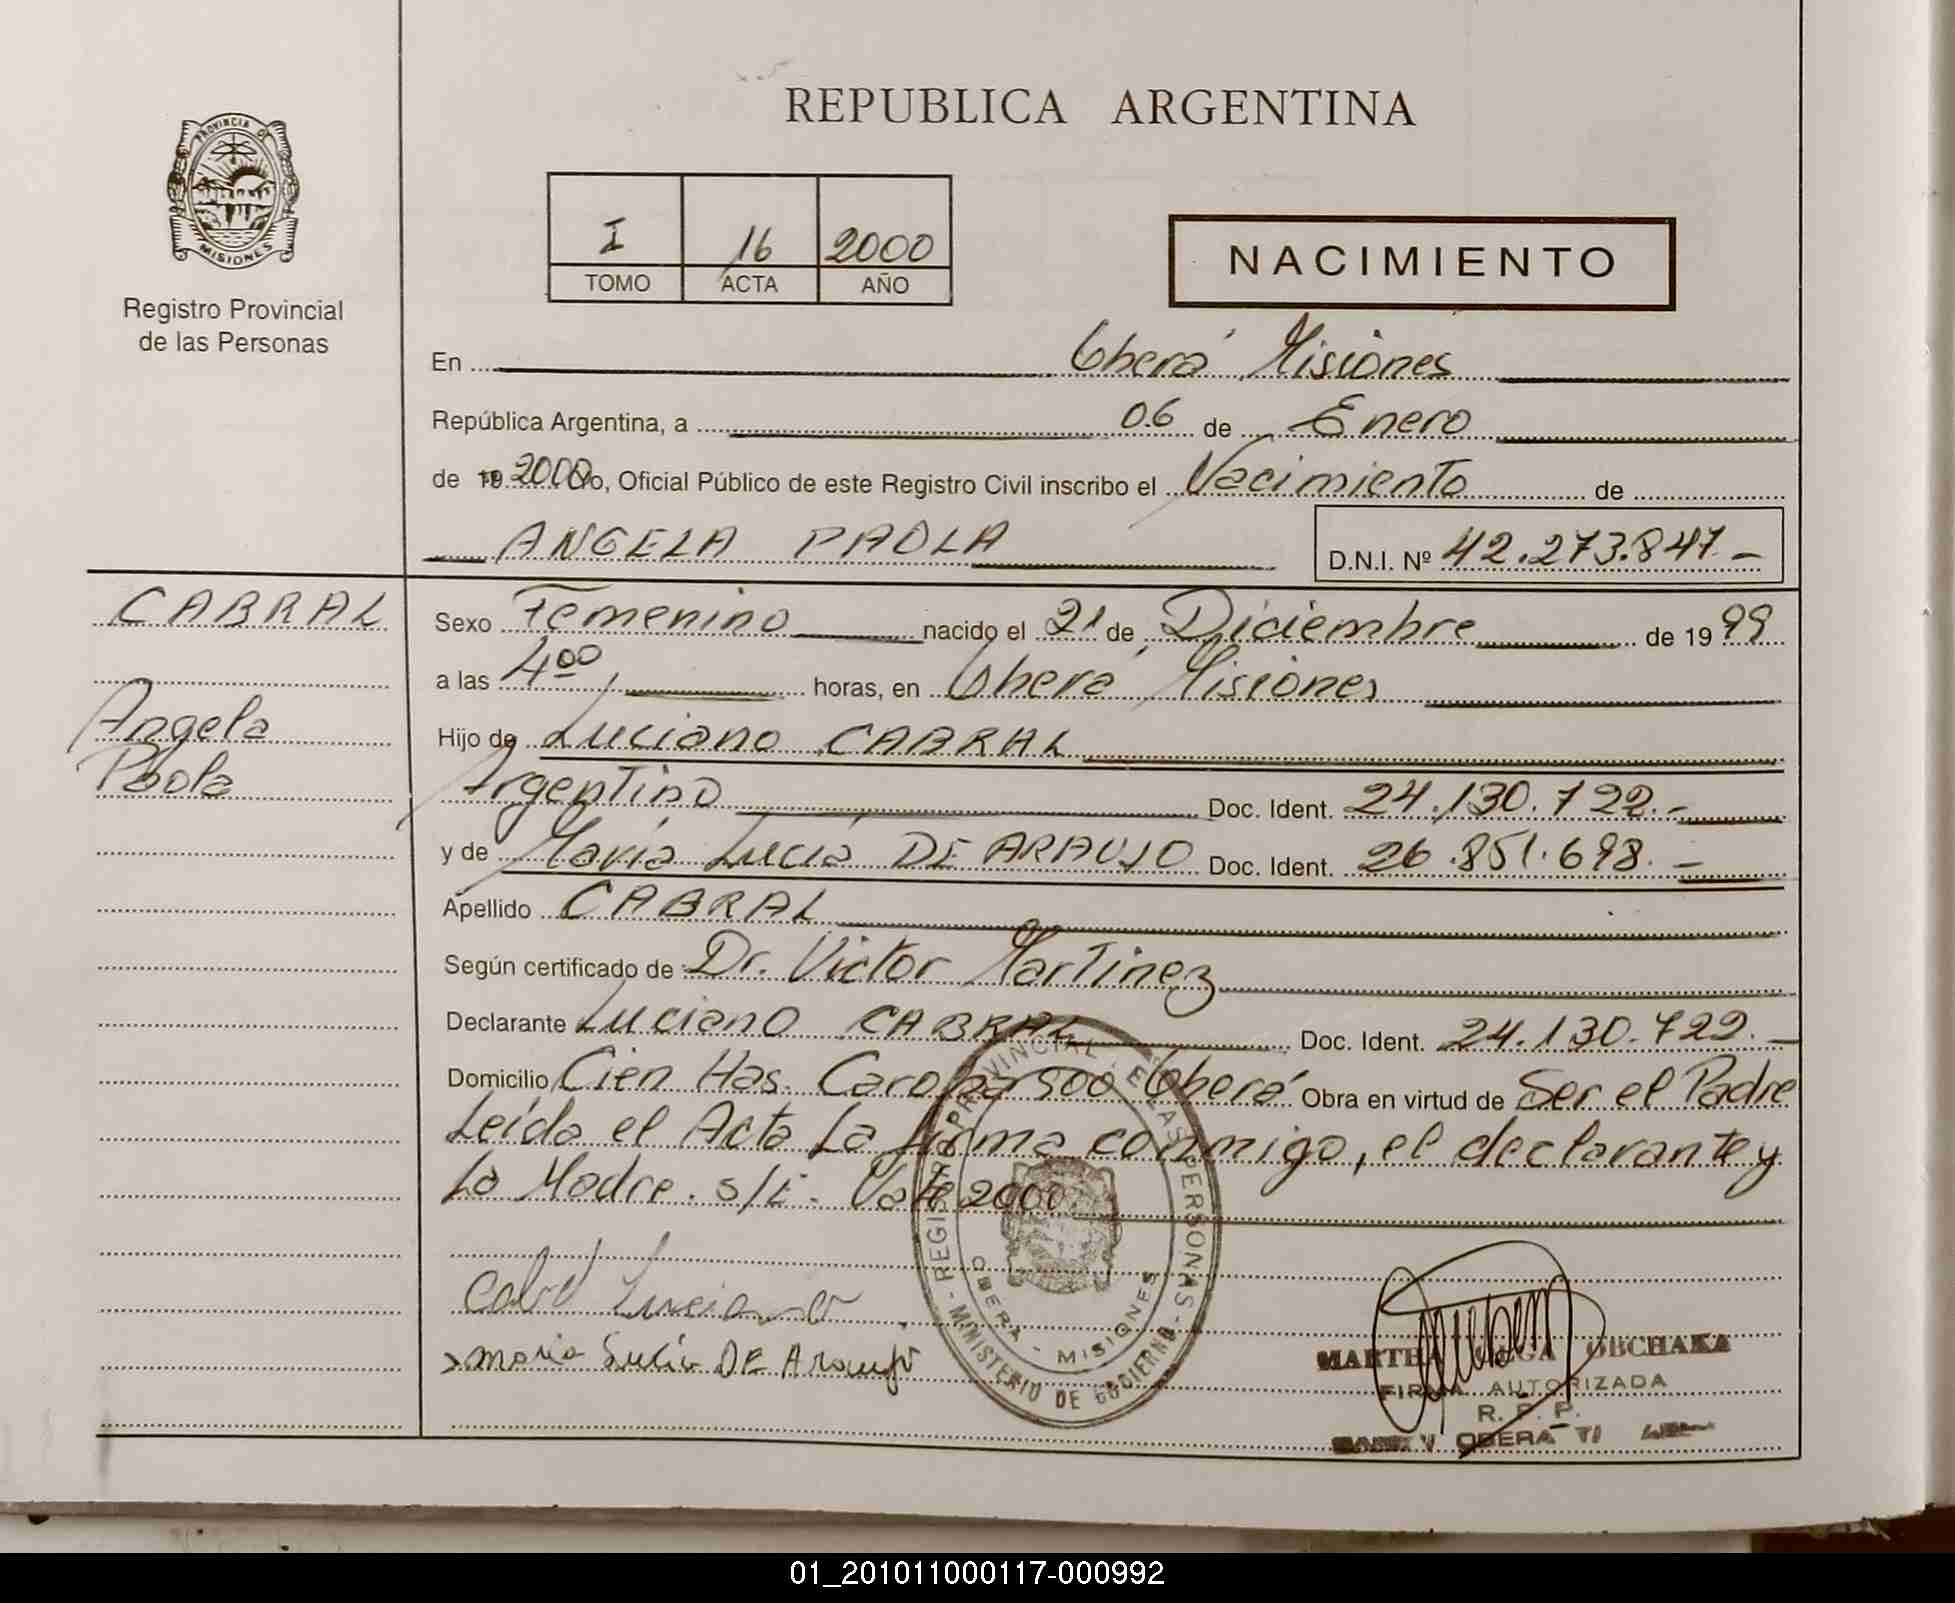 REPUBLICA ARGENTINA
PROVINCIA DE
MISIONES
Registro Provincial
de las Personas
I 16 2000
TOMO ACTA AÑO
NACIMIENTO
En Oberá Misiones
República Argentina, a 06 de Enero
de 19 2000 Yo, Oficial Público de este Registro Civil inscribo el Nacimiento de
ANGELA PAOLA D.N.I. Nº 42.273.847.-
CABRAL
Angela
Paola
Sexo Femenino nacido el 21 de Diciembre de 19 99
a las 4.00 horas, en Oberá Misiones
Hijo de Luciano CABRAL
Argentino Doc. Ident. 24.130.722.-
y de María Lucia DE ARAUJO Doc. Ident. 26.851.698.-
Apellido CABRAL
Según certificado de Dr. Victor Martinez
Declarante Luciano CABRAL Doc. Ident. 24.130.722.-
Domicilio Cien Has. Caroba 500 Oberá Obra en virtud de Ser el Padre
Leída el Acta La firma conmigo, el declarante y
La Madre. s/L. Vale 2000
Cabral Luciano
maria Lucia DE Araujo
REGISTRO PROVINCIAL DE LAS PERSONAS - MINISTERIO DE GOBIERNO -
OBERA - MISIONES
MARTHA OLGA OBCHAKA
FIRMA AUTORIZADA
R. P. P.
OBERA
01_201011000117-000992